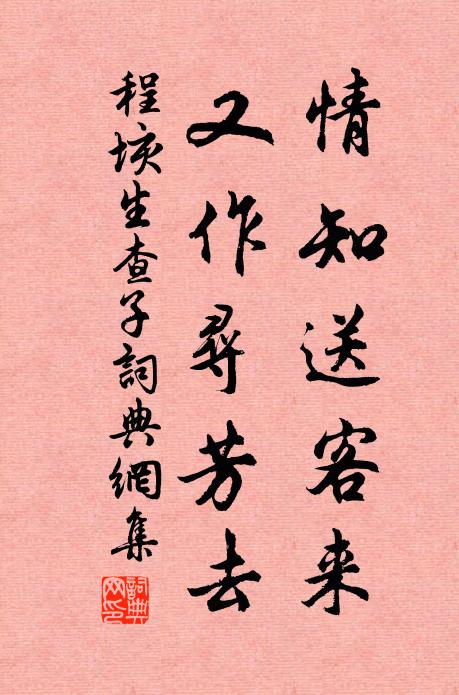 情知送客来
又作尋芳去
程垓生查子詞典網集
詞典網印